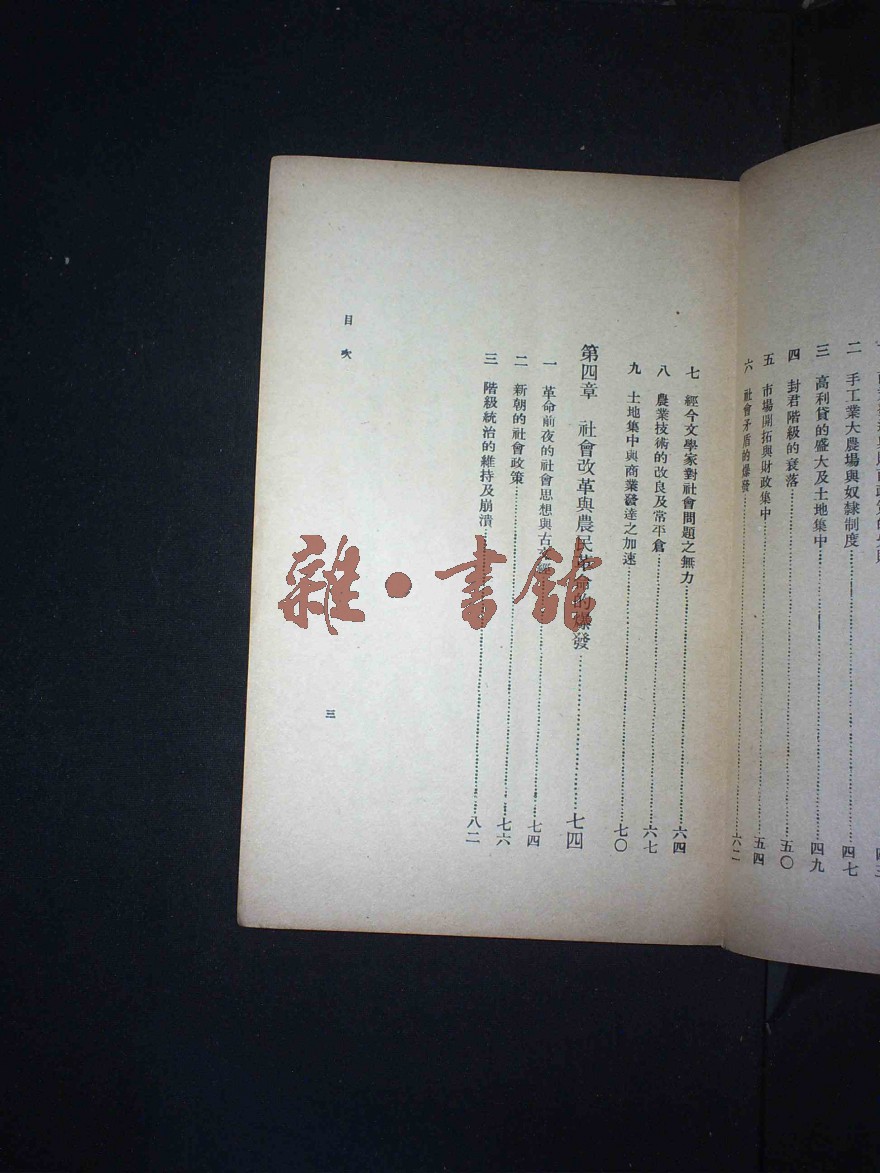 二　手工業大農場與奴隸制度……四七
三　高利貸的盛大及土地集中……四九
四　封君階級的衰落……五〇
五　市場開拓與財政集中……五四
六　社會矛盾的爆發……六二
七　經今文學家對社會問題之無力……六四
八　農業技術的改良及常平倉……六七
九　土地集中與商業發達之加速……七〇
第四章　社會改革與農民革命的爆發……七四
一　革命前夜的社會思想與古文經……七四
二　新朝的社會政策……七六
三　階級統治的維持及崩潰……八二
目次
三
雜·書館